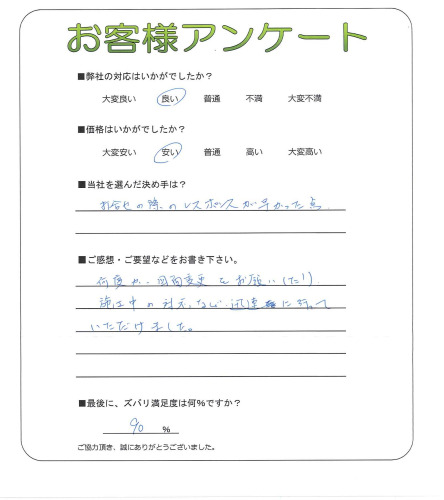 お客様アンケート
■弊社の対応はいかがでしたか？
大変良い 良い 普通 不満 大変不満
■価格はいかがでしたか？
大変安い 安い 普通 高い 大変高い
■当社を選んだ決め手は？
お問合せの際のレスポンスが早かった点
■ご感想・ご要望などをお書き下さい。
何度か、図面変更をお願いしたり
施工中の対応など、迅速に行って
いただけました。
■最後に、ズバリ満足度は何％ですか？
90 ％
ご協力頂き、誠にありがとうございました。